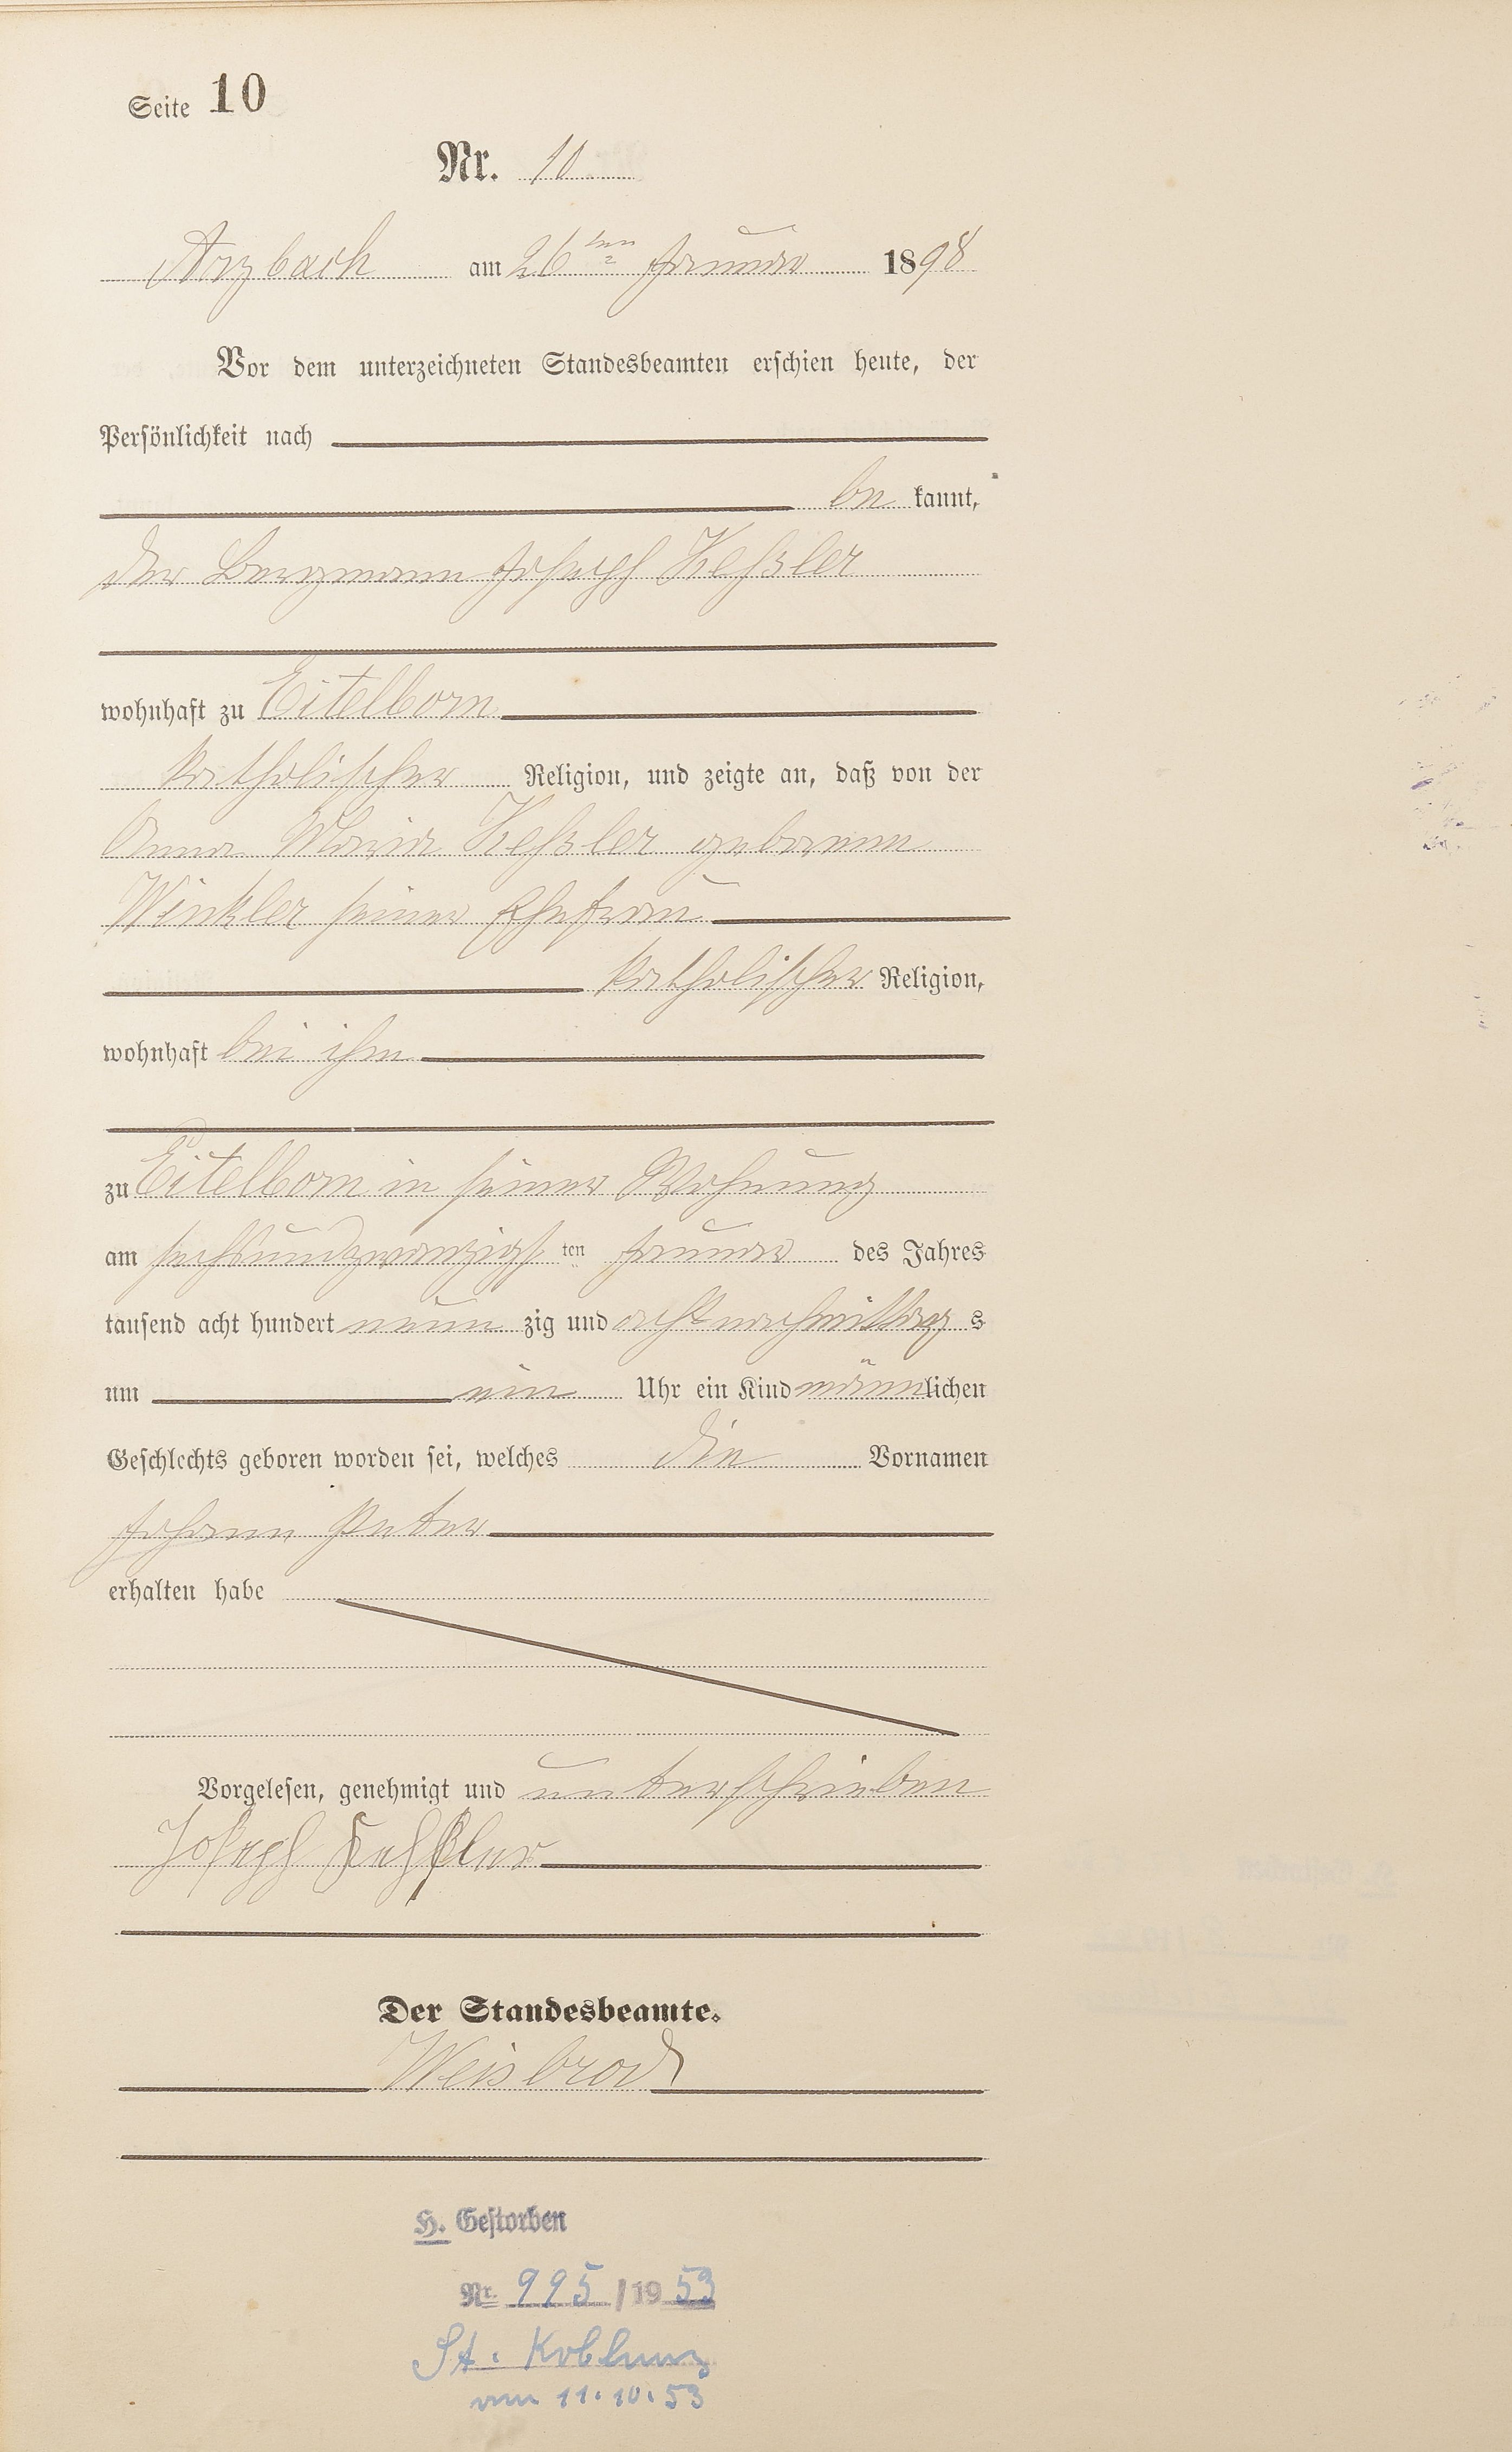 Seite 10
Nr. 10
Arzbach am 26ten Januar 1898
Vor dem unterzeichneten Standesbeamten erschien heute, der
Persönlichkeit nach
be kannt,
der Bergmann Joseph Keßler
wohnhaft zu Eitelborn
katholischer Religion, und zeigte an, daß von der
Anna Maria Keßler geborenen
Winkler seiner Ehefrau
katholischer Religion,
wohnhaft bei ihm
zu Eitelborn in seiner Wohnung
am sechsundzwanzigsten Januar des Jahres
tausend acht hundert neun zig und acht nachmittag s
um ein Uhr ein Kind männlichen
Geschlechts geboren worden sei, welches die Vornamen
Johann Peter
erhalten habe
Vorgelesen, genehmigt und unterschrieben
Joseph Keßler
Der Standesbeamte.
Weisbrod
H. Gestorben
Nr. 995 /1953
St. Koblenz
am 11.10.53